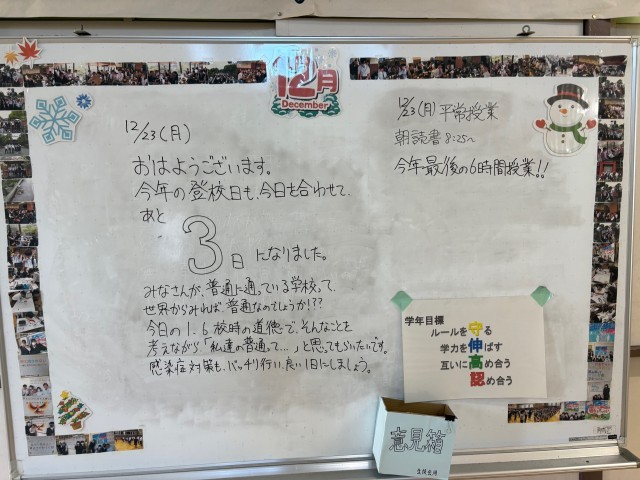 12月
December
12/23(月)
おはようございます。
今年の登校日も、今日を合わせて、
あと
3日になりました。
みなさんが、普通に通っている学校って、
世界からみれば、普通なのでしょうか!??
今日の1、6校時の道徳で、そんなことを
考えながら「私達の普通って…」と思ってもらいたいです。
感染症対策も、バッチリ行い、良い1日にしましょう。
12/23(月)平常授業
朝読書8:25~
今年最後の6時間授業!!
学年目標
ルールを守る
学力を伸ばす
互いに高め合う
認め合う
意見箱